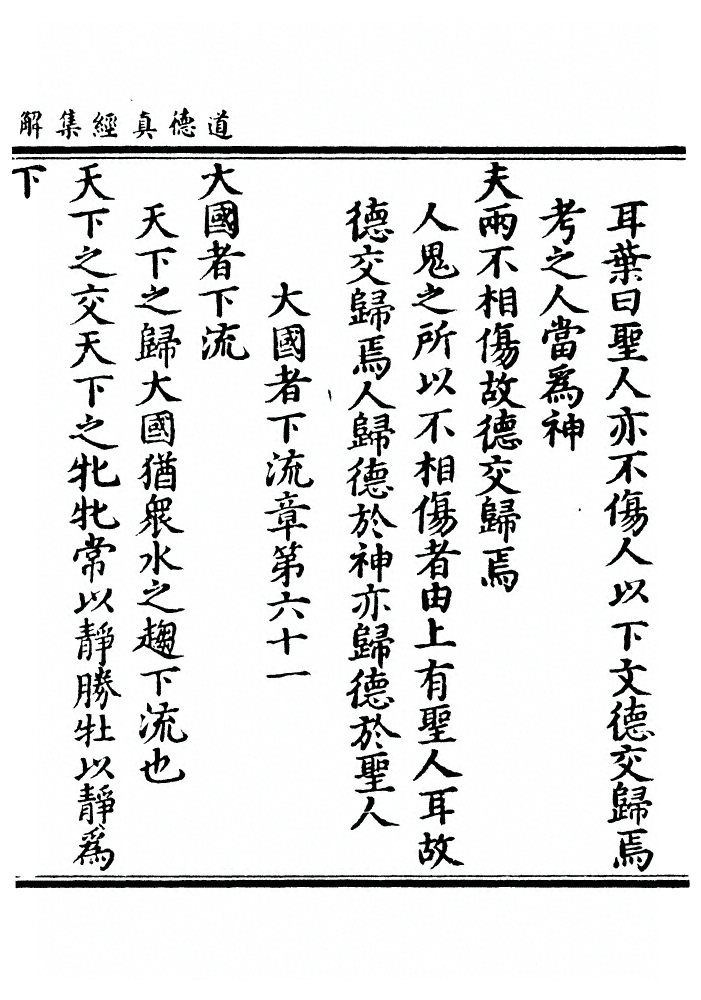 道德真經集解
耳葉曰聖人亦不傷人以下文德交歸焉
考之人當爲神
夫兩不相傷故德交歸焉
人鬼之所以不相傷者由上有聖人耳故
德交歸焉人歸德於神亦歸德於聖人
大國者下流章第六十一
大國者下流
天下之歸大國猶衆水之趨下流也
天下之交天下之牝牝常以靜勝牡以靜爲
下